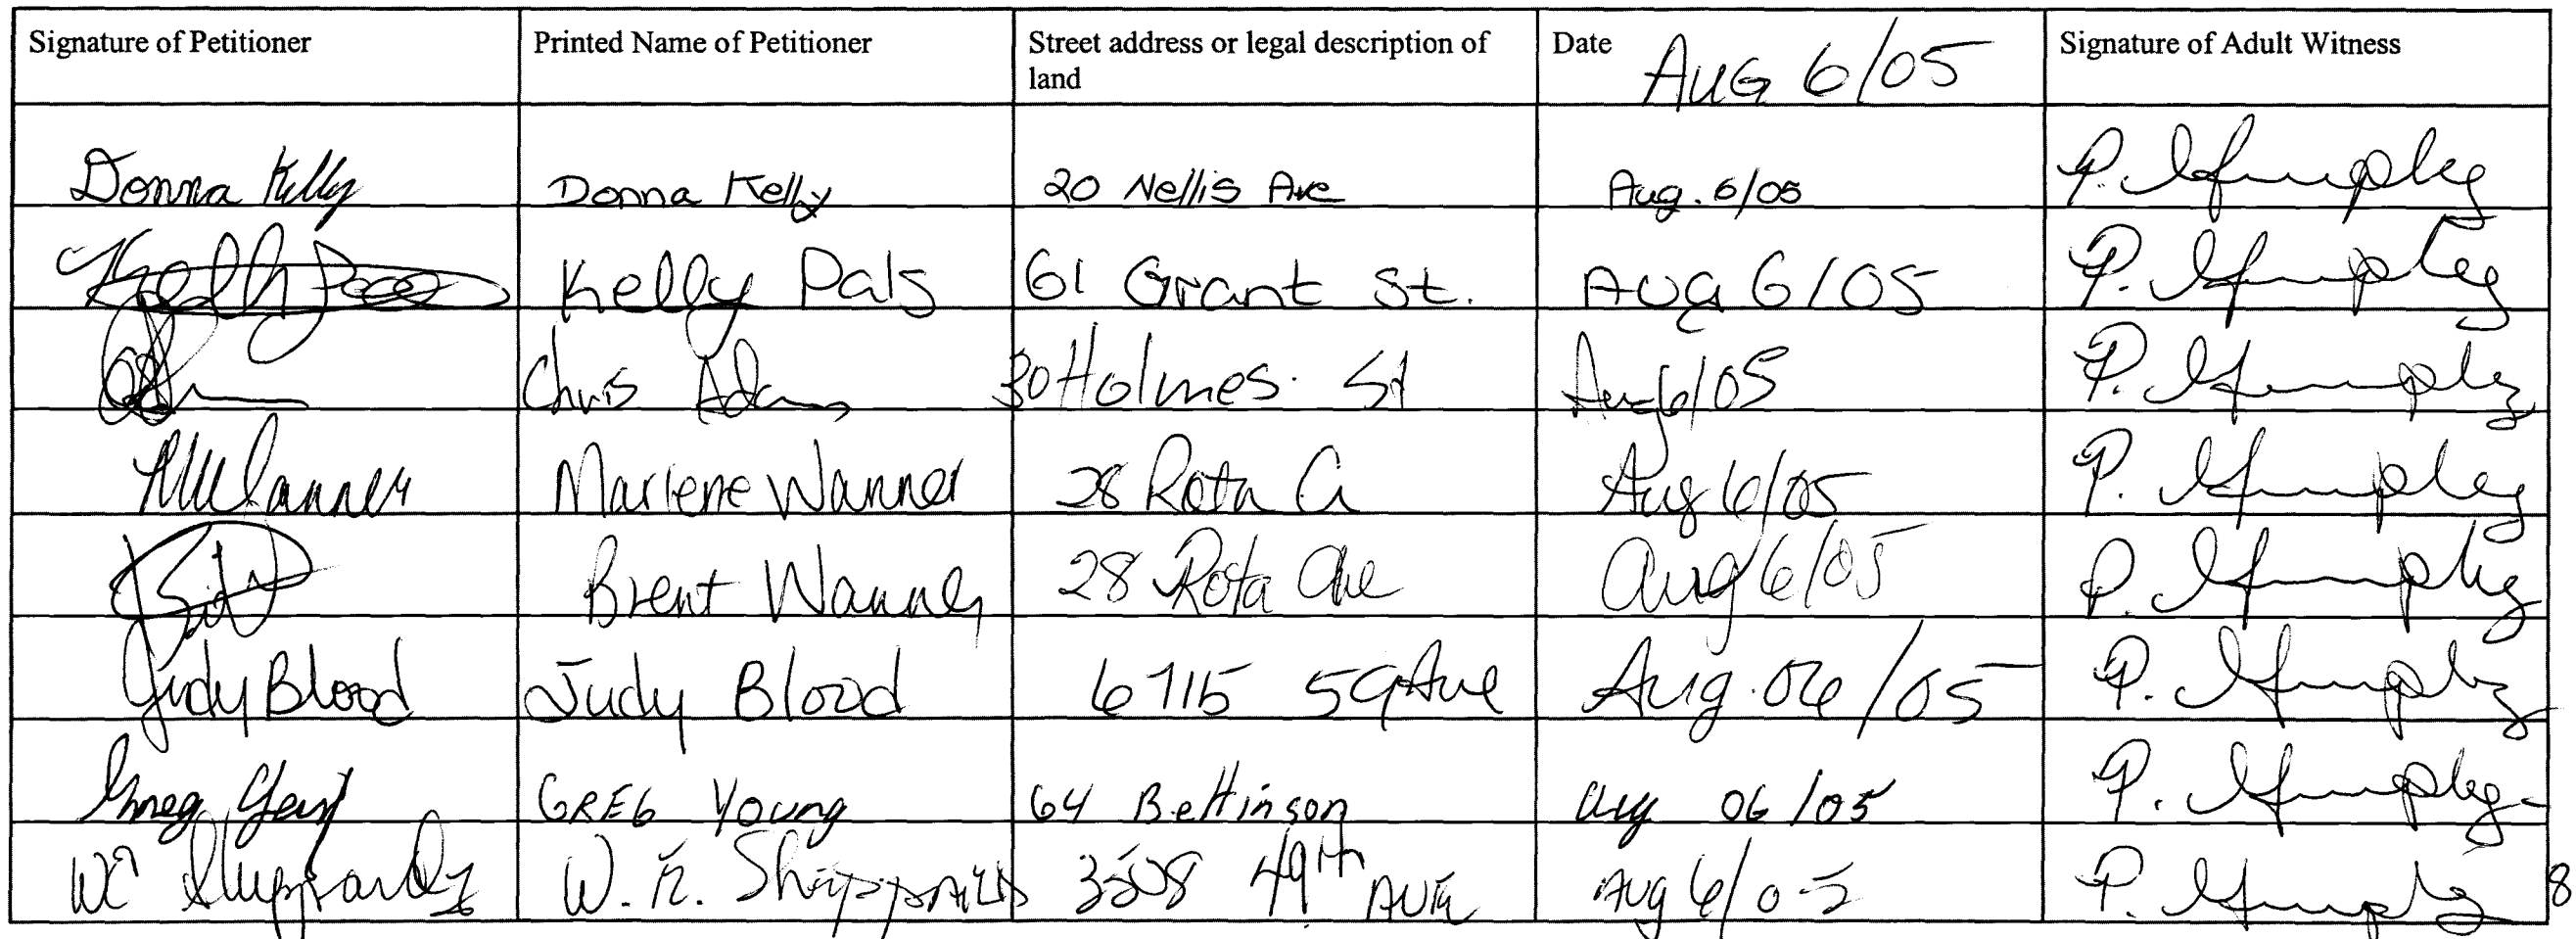 Signature of Petitioner Printed Name of Petitioner Street address or legal description of land Date AUG 6/05 Signature of Adult Witness
Donna Kelly Donna Kelly 20 Nellis Ave Aug. 6/05 P.
Kelly Pals 61 Grant St. AUG 6/05 P.
Chris Adams 30 Holmes St Aug 6/05 P.
M Wanner Marlene Wanner 28 Rota Aug 6/05 P.
Brent Wanner 28 Rota Ave Aug 6/05 P.
Judy Blood Judy Blood 6715 59 Ave Aug. 06/05 P.
Greg Young GREG Young 64 Bettinson Aug 06/05 P.
W. R. 3508 49th AVE Aug 6/05 P.
8